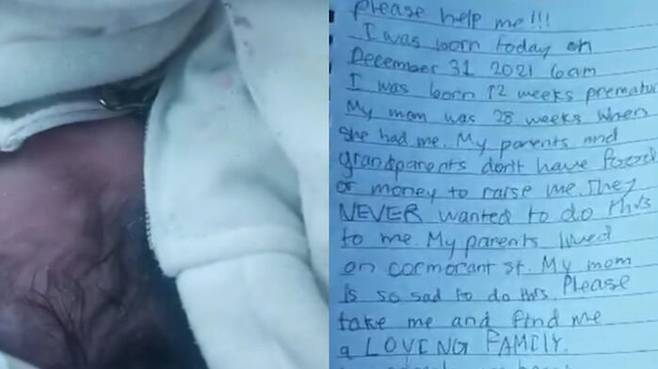 Please help me!!!
I was born today on
December 31 2021 6am
I was born 12 weeks prematur
My mom was 28 weeks when
she had me. My parents and
grandparents don't have food
or money to raise me. They
NEVER wanted to do this
to me. My parents lived
on cormorant st. My mom
is so sad to do this. Please
take me and find me
a LOVING FAMILY.